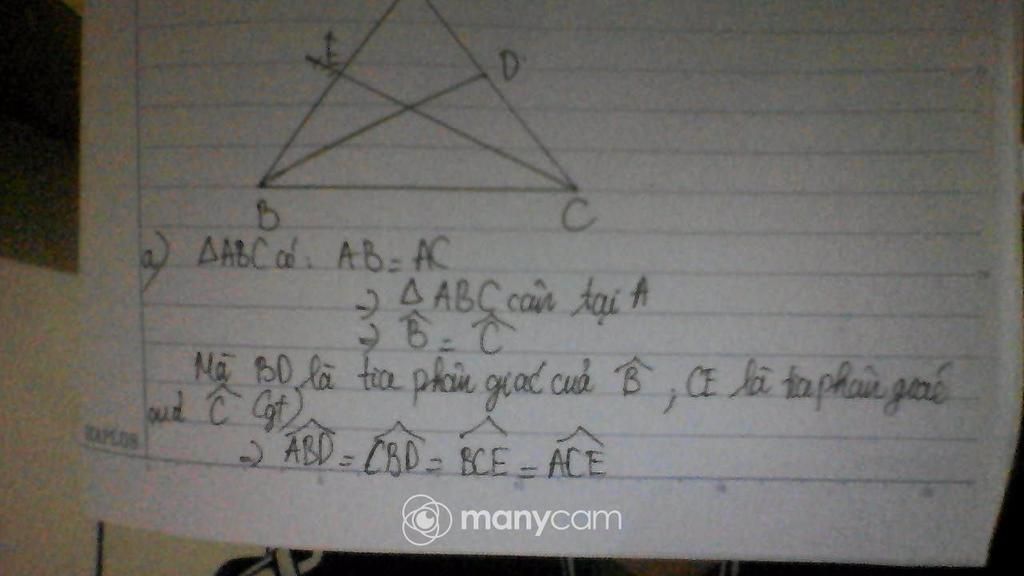 E
D
B
C
a) ΔABC có: AB = AC
=> ΔABC cân tại A
=> B̂ = Ĉ
Mà BD là tia phân giác của B̂, CE là tia phân giác
của Ĉ (gt)
=> \widehat{ABD} = \widehat{CBD} = \widehat{BCE} = \widehat{ACE}
manycam